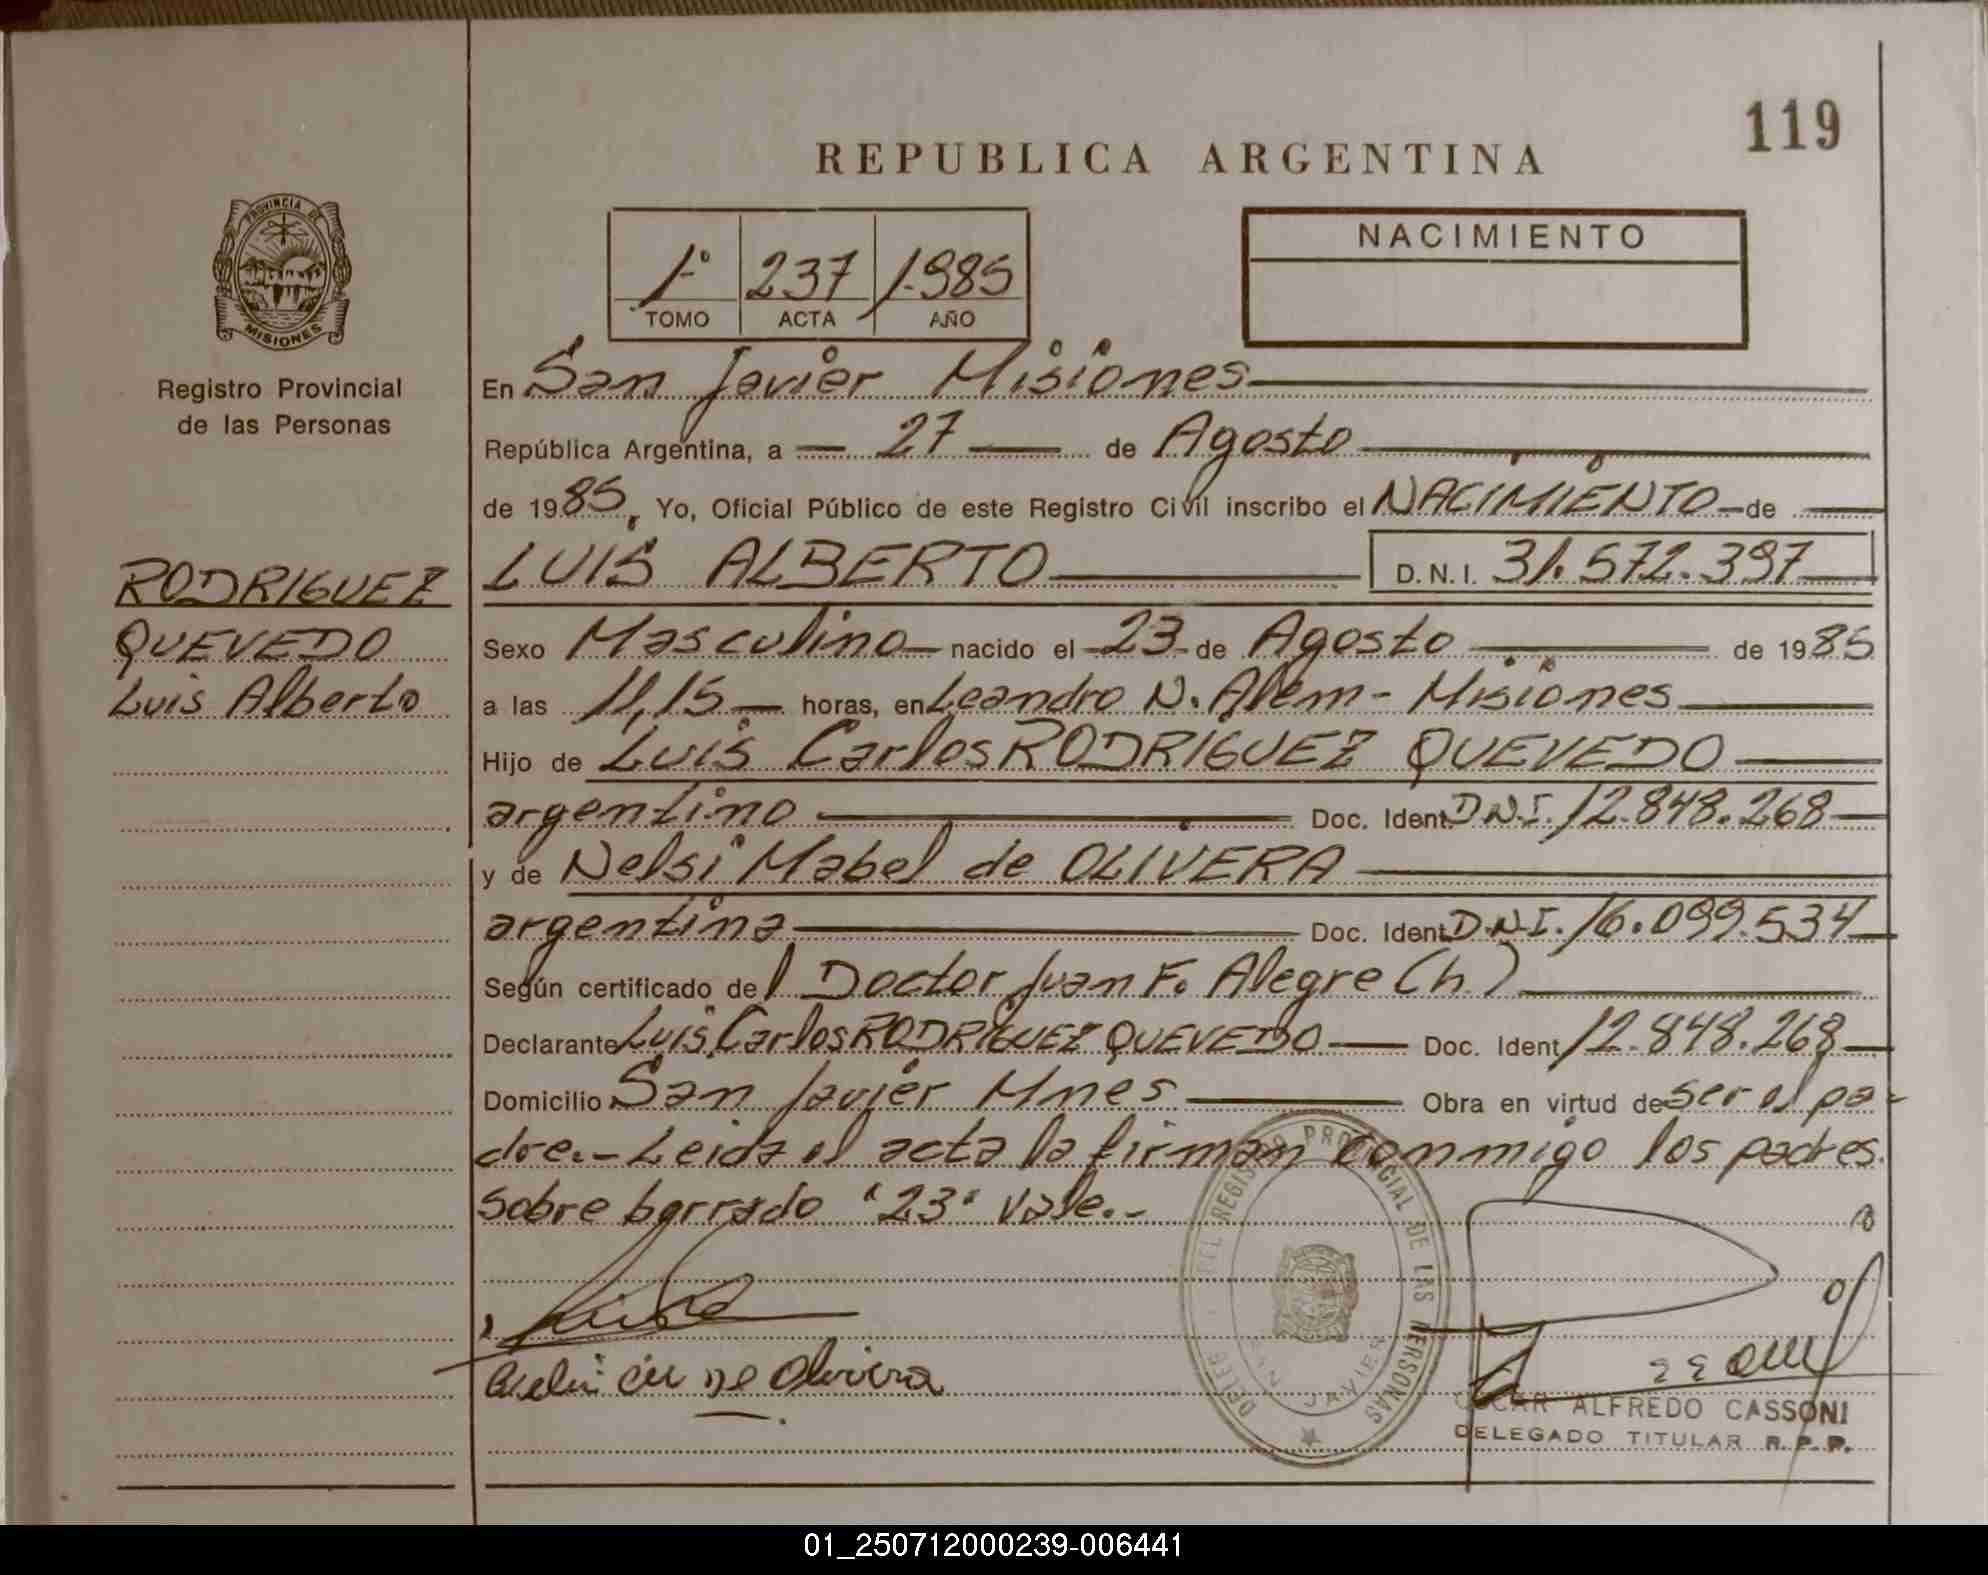 119
REPUBLICA ARGENTINA
PROVINCIA DE
MISIONES
Registro Provincial
de las Personas
1º 237 1.985
TOMO ACTA AÑO
NACIMIENTO
En San Javier Misiones
República Argentina, a 27 de Agosto
de 1985, Yo, Oficial Público de este Registro Civil inscribo el NACIMIENTO de
RODRIGUEZ
QUEVEDO
Luis Alberto
LUIS ALBERTO D.N.I. 31.572.397
Sexo Masculino nacido el 23 de Agosto de 1985
a las 11,15 horas, en Leandro N. Alem - Misiones
Hijo de Luis Carlos RODRIGUEZ QUEVEDO
argentino Doc. Ident. D.N.I. 12.848.268
y de Nelsi Mabel de OLIVERA
argentina Doc. Ident. D.N.I. 16.099.534
Según certificado del Doctor Juan F. Alegre (h)
Declarante Luis Carlos RODRIGUEZ QUEVEDO Doc. Ident 12.848.268
Domicilio San Javier Mnes Obra en virtud de ser el pa-
dre.- Leida el acta la firman conmigo los padres.
Sobre borrado "23" vale.-
DELEG. DEL REGISTRO PROVINCIAL DE LAS PERSONAS
SAN JAVIER
de Olivera
OSCAR ALFREDO CASSONI
DELEGADO TITULAR R.P.P.
01_250712000239-006441